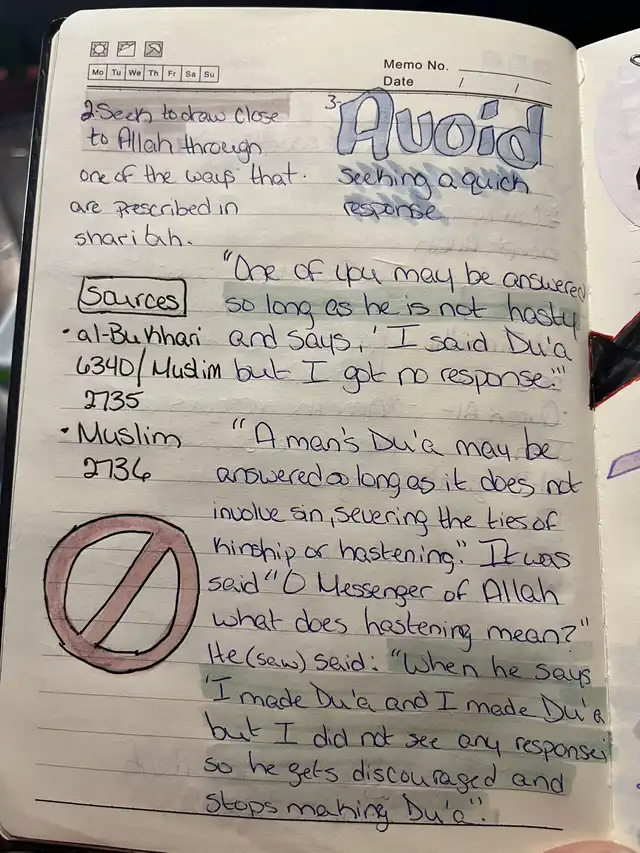 Mo Tu We Th Fr Sa Su
Memo No.
Date / /
2 Seek to draw close
to Allah through
one of the ways that.
are prescribed in
shari'ah.
3- Avoid
seeking a quick
response
Sources
• al-Bukhari
6340/Muslim
2735
• Muslim
2736
"One of you may be answered
so long as he is not hasty
and says, 'I said Du'a
but I got no response.'"
"A man's Du'a may be
answered so long as it does not
involve sin, severing the ties of
kinship or hastening." It was
said "O Messenger of Allah
what does hastening mean?"
He (saw) said: "When he says
'I made Du'a and I made Du'a
but I did not see any response;
so he gets discouraged and
stops making Du'a".